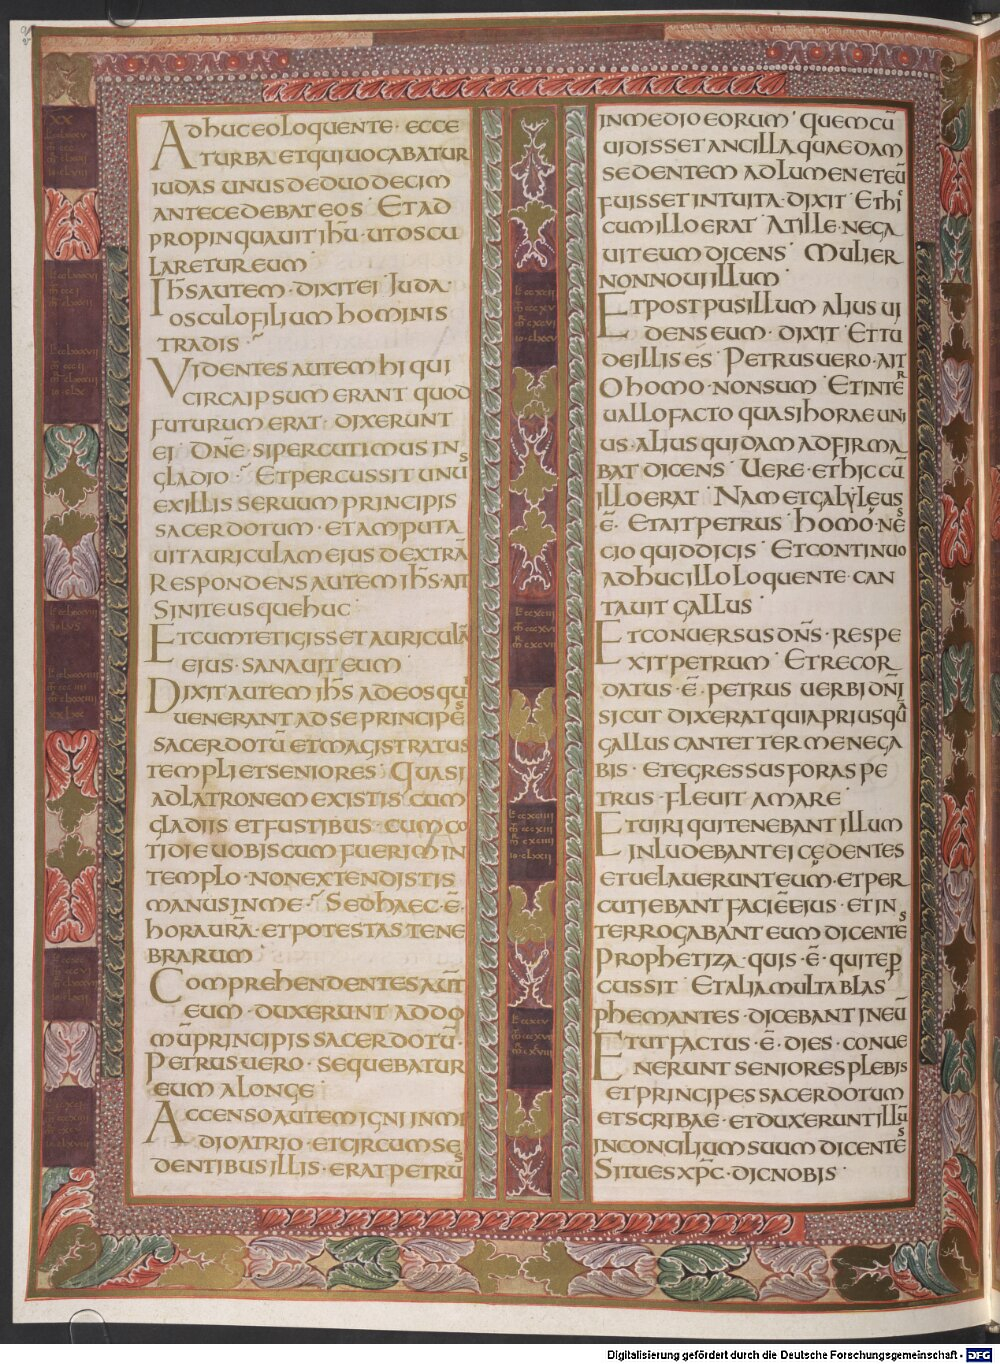 Adhuc eo loquente · ecce
turba et qui uocabatur
iudas unus de duodecim
antecedebat eos · Et ad
propinquauit ihū · ut oscu
laretur eum
Ihs autem · dixit ei Iuda
osculo filium hominis
tradis ·
Videntes autem hi qui
circa ipsum erant quod
futurum erat · dixerunt
ei · Dnē · si percutimus in
gladio · Et percussit unūs
ex illis seruum principis
sacerdotum · et amputa
uit auriculam eius dextrā
Respondens autem ihs · ait
Sinite usque huc ·
Et cum tetigisset auriculā
eius · sanauit eum ·
Dixit autem ihs ad eos qui
uenerant ad se principes
sacerdotū et magistratus
templi et seniores · Quasi
ad latronem existis cum
gladiis et fustibus · cum co
tidie uobiscum fuerim in
templo · non extendistis
manus in me · Sed haec · ē ·
hora urā · et potestas tene
brarum ·
Comprehendentes aūt
eum · duxerunt ad do
mū principis sacerdotū ·
Petrus uero · sequebatur
eum a longe ·
Accenso autem igni in me
dio atrio · et circum se
dentibus illis · erat petrus
in medio eorum · Quem cū
uidisset ancilla quaedam
sedentem ad lumen et eū
fuisset intuita · dixit · Et hic
cum illo erat · At ille · nega
uit eum dicens · Mulier
non noui illum ·
Et post pusillum alius ui
dens eum · dixit · Et tu
de illis es · Petrus uero · ait
O homo · non sum · Et inter
uallo facto quasi horae uni
us · alius quidam adfirma
bat dicens · Uere · et hic cū
illo erat · Nam et galyleus
ē · Et ait petrus · homo · nes
cio quid dicis · Et continuo
adhuc illo loquente · can
tauit gallus ·
Et conuersus dns · respe
xit petrum · Et recor
datus · ē · petrus uerbi dni
sicut dixerat quia prius quā
gallus cantet ter me nega
bis · et egressus foras pe
trus · fleuit amare ·
Et uiri qui tenebant illum
inludebant ei cędentes
et uelauerunt eum · et per
cutiebant faciē eius · et in
terrogabant eum dicentes
Prophetiza · quis · ē · qui te per
cussit · Et alia multa blas
phemantes · dicebant in eū
Et ut factus · ē · dies · conue
nerunt seniores plebis
et principes sacerdotum
et scribae · et duxerunt illū
in concilium suum dicentes
Si tu es xpc · dic nobis ·
Digitalisierung gefördert durch die Deutsche Forschungsgemeinschaft - DFG